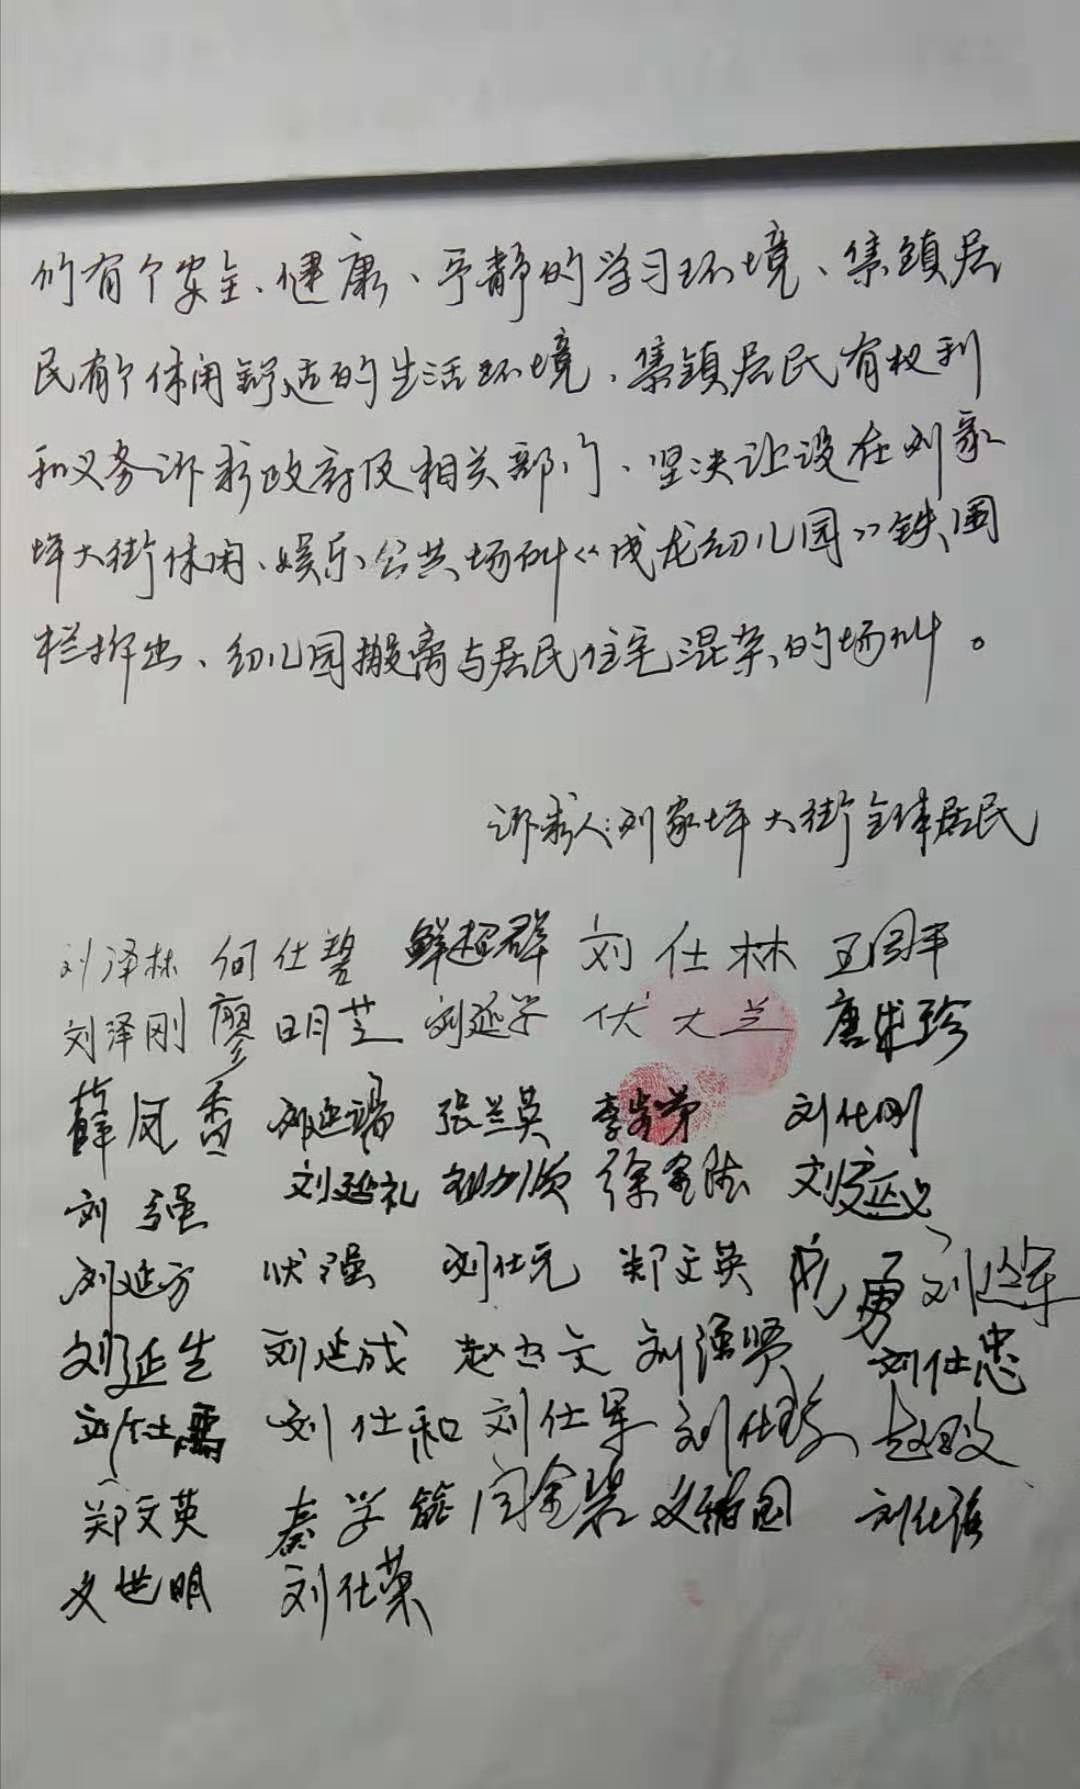 们有个安全、健康、平静的学习环境、集镇居
民有个休闲舒适的生活环境、集镇居民有权利
和义务诉求政府及相关部门、坚决让设在刘家
坪大街休闲、娱乐公共场所《成龙幼儿园》铁围
栏拆出、幼儿园搬离与居民住宅混杂的场所。
诉求人:刘家坪大街全体居民
刘泽林 何仕碧 鲜超群 刘仕林 王国平
刘泽刚 廖明芝 刘延学 伏大兰 唐 珍
薛凤香 刘延瑞 张兰英 李 刘仕刚
刘强 刘延礼 徐 刘延义
刘延方 伏强 刘仕元 郑文英 庞勇 刘 军
刘延生 刘延成 赵 文 刘 贤 刘仕忠
刘仕儒 刘仕和 刘仕军 刘仕 赵政
郑文英 秦学能 闫金 国 刘仕强
文世明 刘仕荣